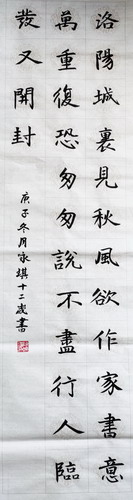 洛陽城裏見秋風欲作家書意
萬重復恐匆匆說不盡行人臨
發又開封
庚子冬月家墣十二歲書